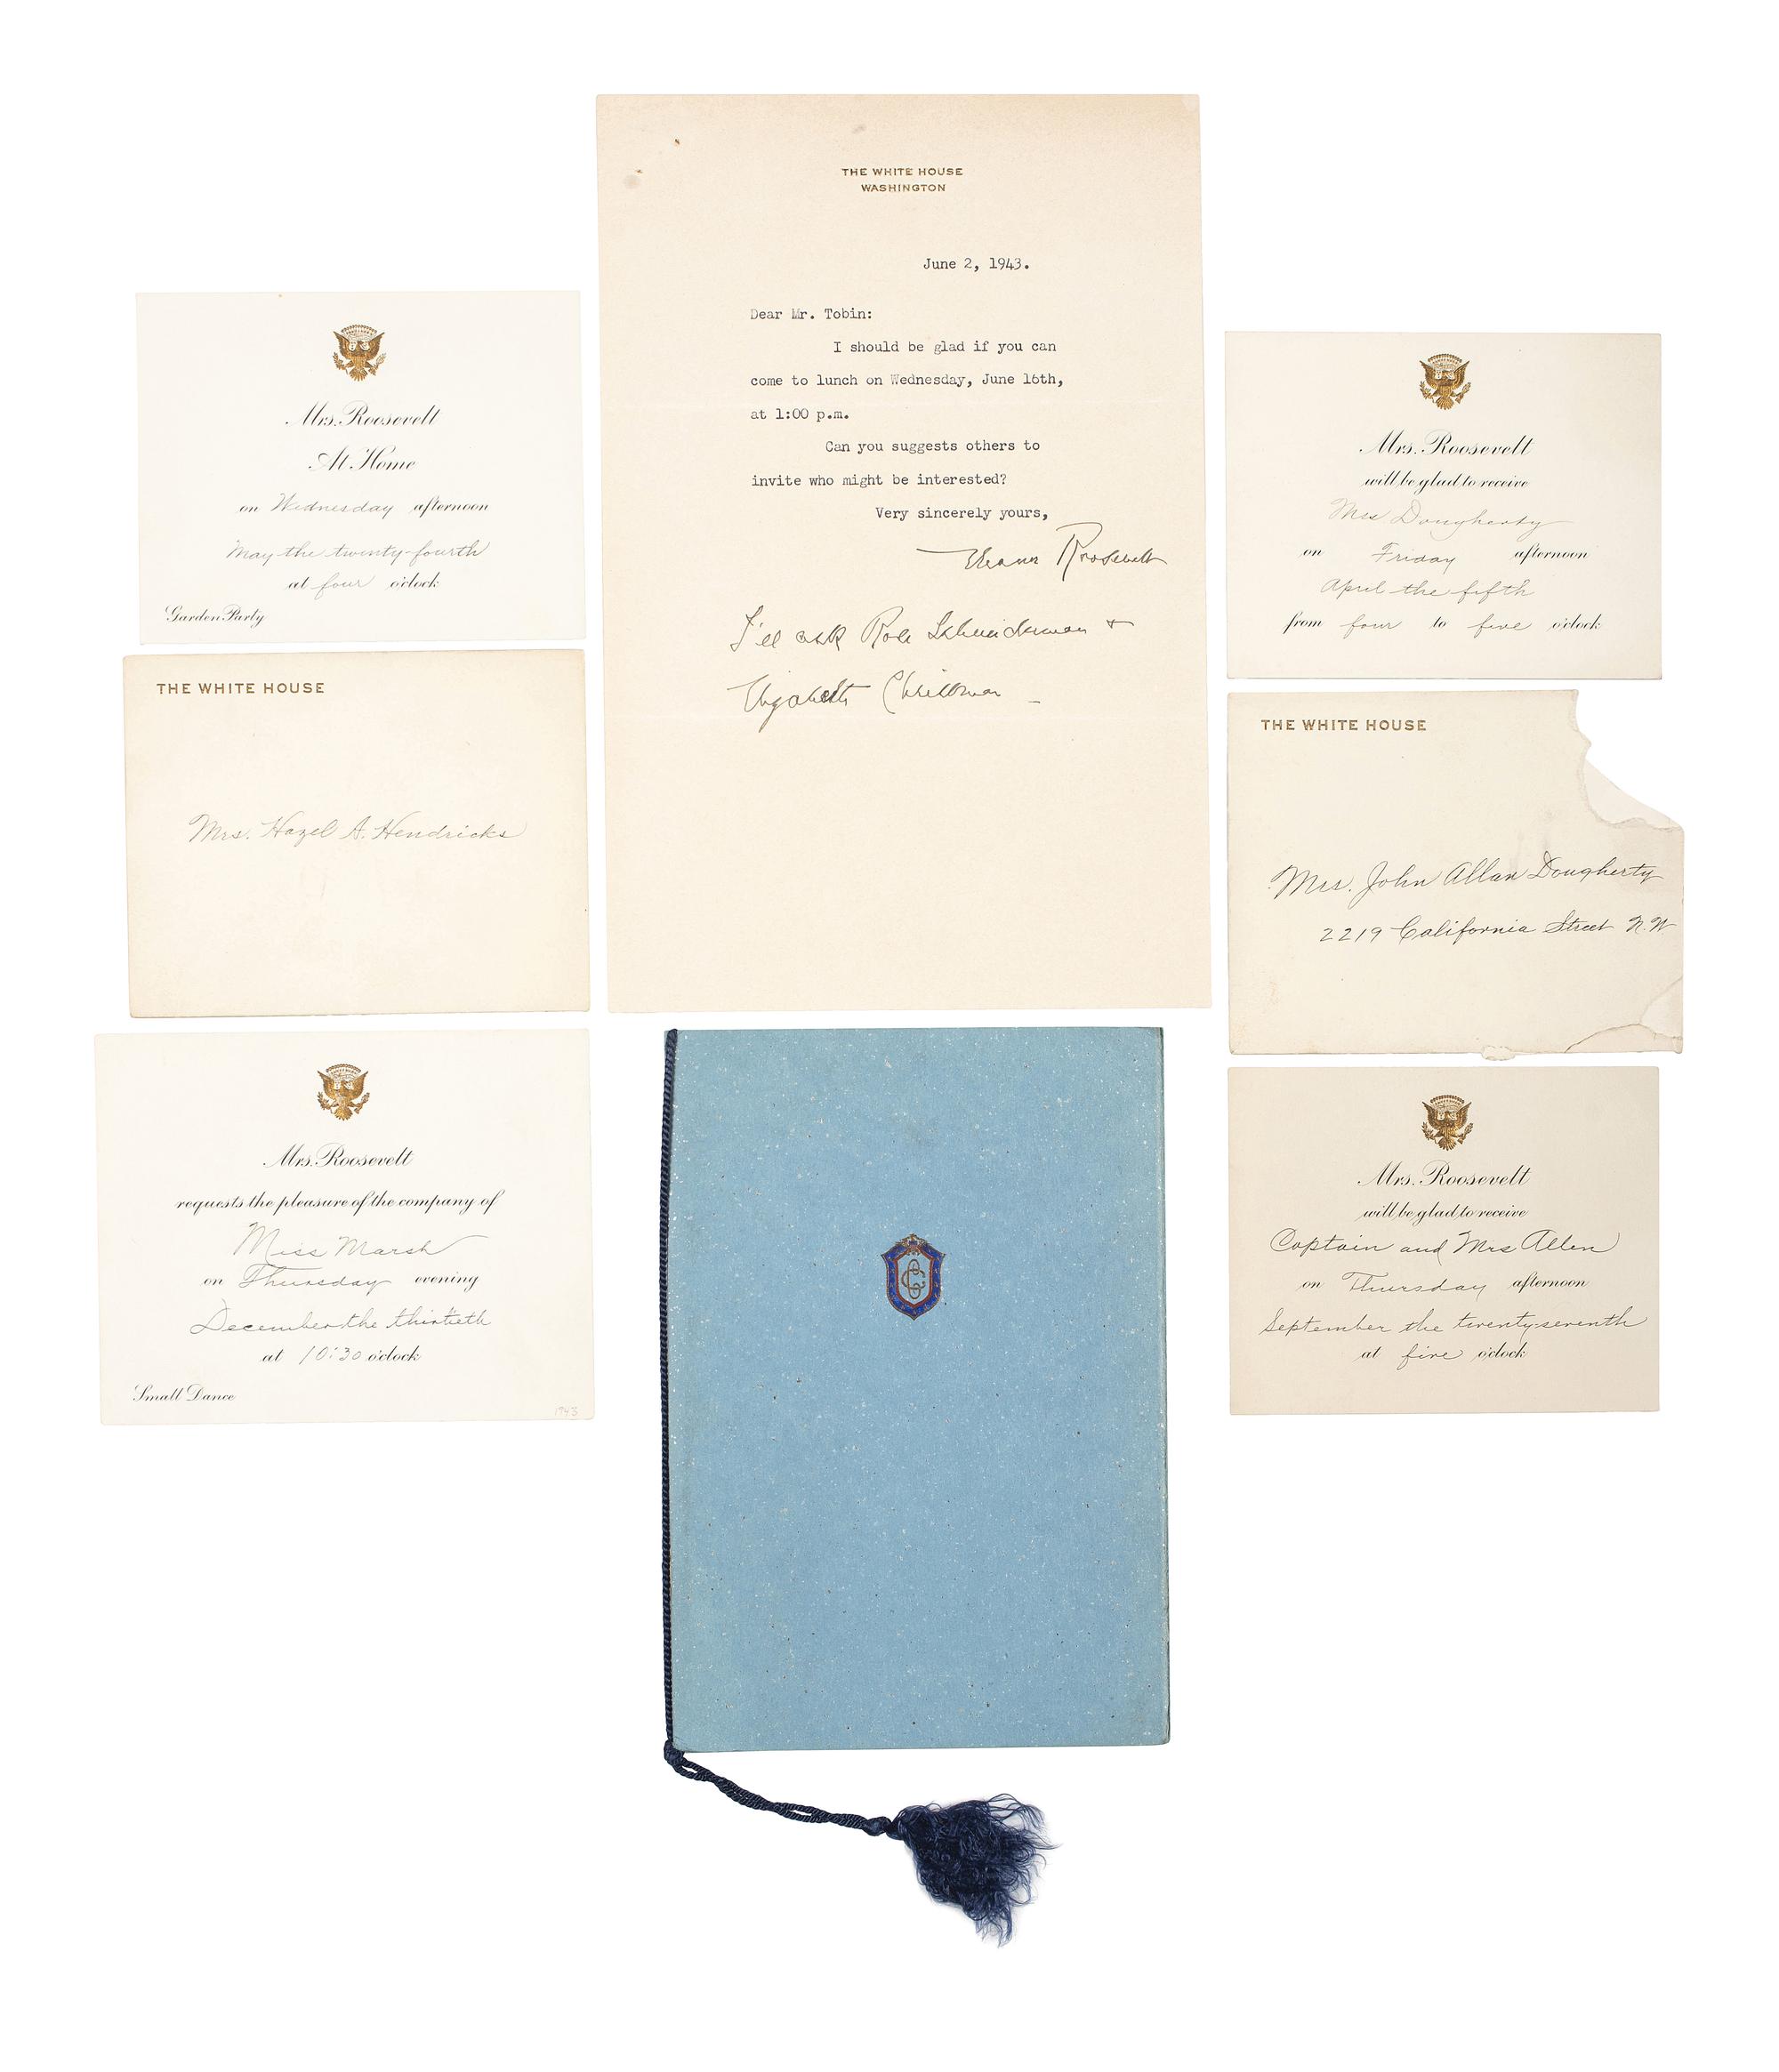 Mrs. Roosevelt
At Home
on Wednesday afternoon
May the twenty-fourth
at four o'clock
Garden Party
THE WHITE HOUSE
Mrs. Hazel A. Hendricks
Mrs. Roosevelt
requests the pleasure of the company of
Miss Marsh
on Thursday evening
December the thirtieth
at 10:30 o'clock
Small Dance
1943
THE WHITE HOUSE
WASHINGTON
June 2, 1943.
Dear Mr. Tobin:
I should be glad if you can
come to lunch on Wednesday, June 16th,
at 1:00 p.m.
Can you suggests others to
invite who might be interested?
Very sincerely yours,
Eleanor Roosevelt
I'll ask Rose Schneiderman +
Elizabeth Christman –
Mrs. Roosevelt
will be glad to receive
Mrs Dougherty
on Friday afternoon
April the fifth
from four to five o'clock
THE WHITE HOUSE
Mrs. John Allan Dougherty
2219 California Street N.W
Mrs. Roosevelt
will be glad to receive
Captain and Mrs Allen
on Thursday afternoon
September the twenty-seventh
at five o'clock